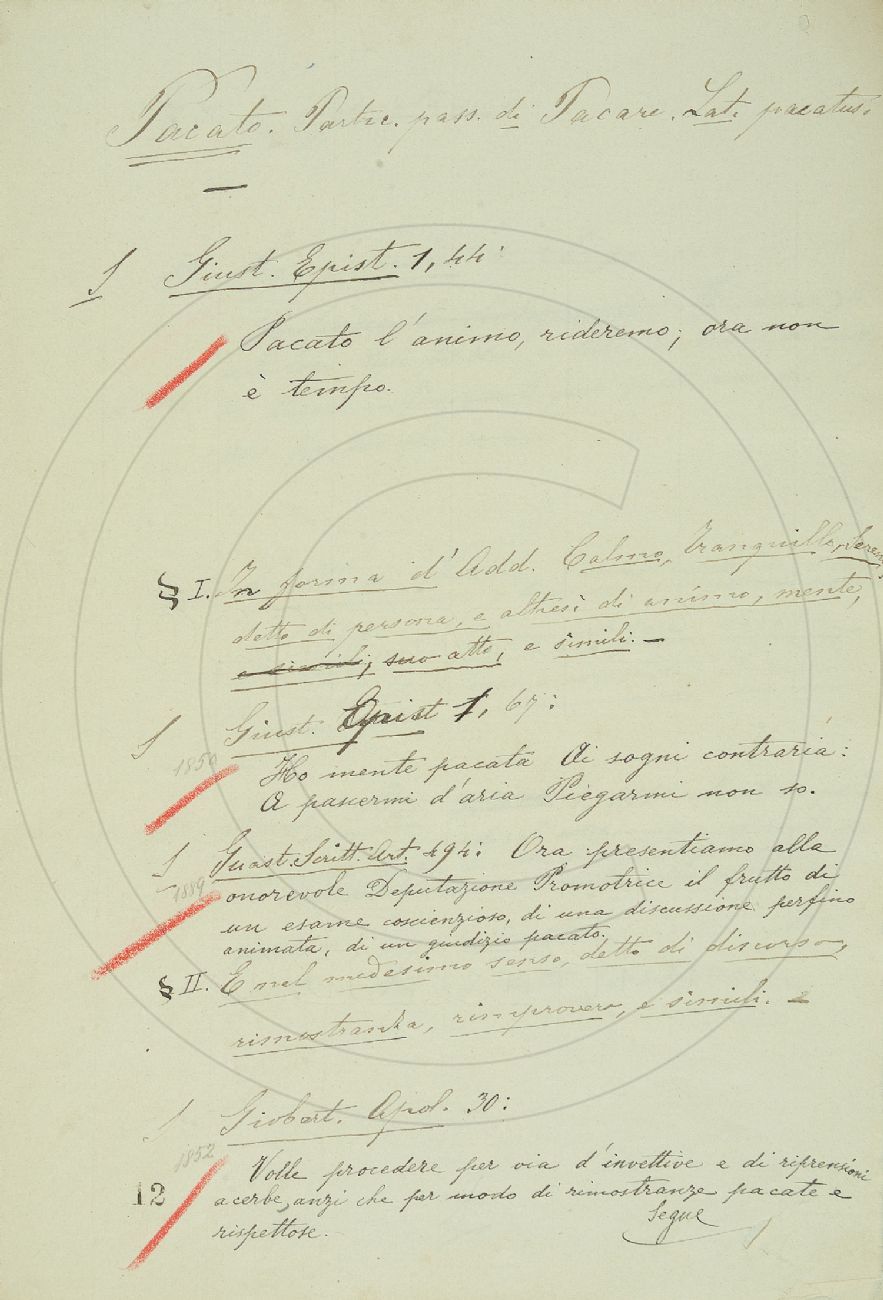 Pacato. Partic. pass. di Pacare. Lat. pacatus.
—
S Giust. Epist. 1, 44:
Pacato l'animo, rideremo; ora non
è tempo.
§ I. In forma d'Add. Calmo, Tranquillo, Sereno,
detto di persona, e altresì di animo, mente,
e simili; suo atto, e simili. —
S Giust. Epist 1, 67:
1850
Ho mente pacata Ai sogni contraria:
A pascermi d'aria Piegarmi non so.
S Guast. Scritt. Art. 494: Ora presentiamo alla
1889
onorevole Deputazione Promotrice il frutto di
un esame coscienzioso, di una discussione perfino
animata, di un giudizio pacato.
§ II. E nel medesimo senso, detto di discorso,
rimostranza, rimprovero, e simili. —
S Giobert. Apol. 30:
1852
Volle procedere per via d'invettive e di riprensioni
12
acerbe, anzi che per modo di rimostranze pacate e
rispettose.
Segue